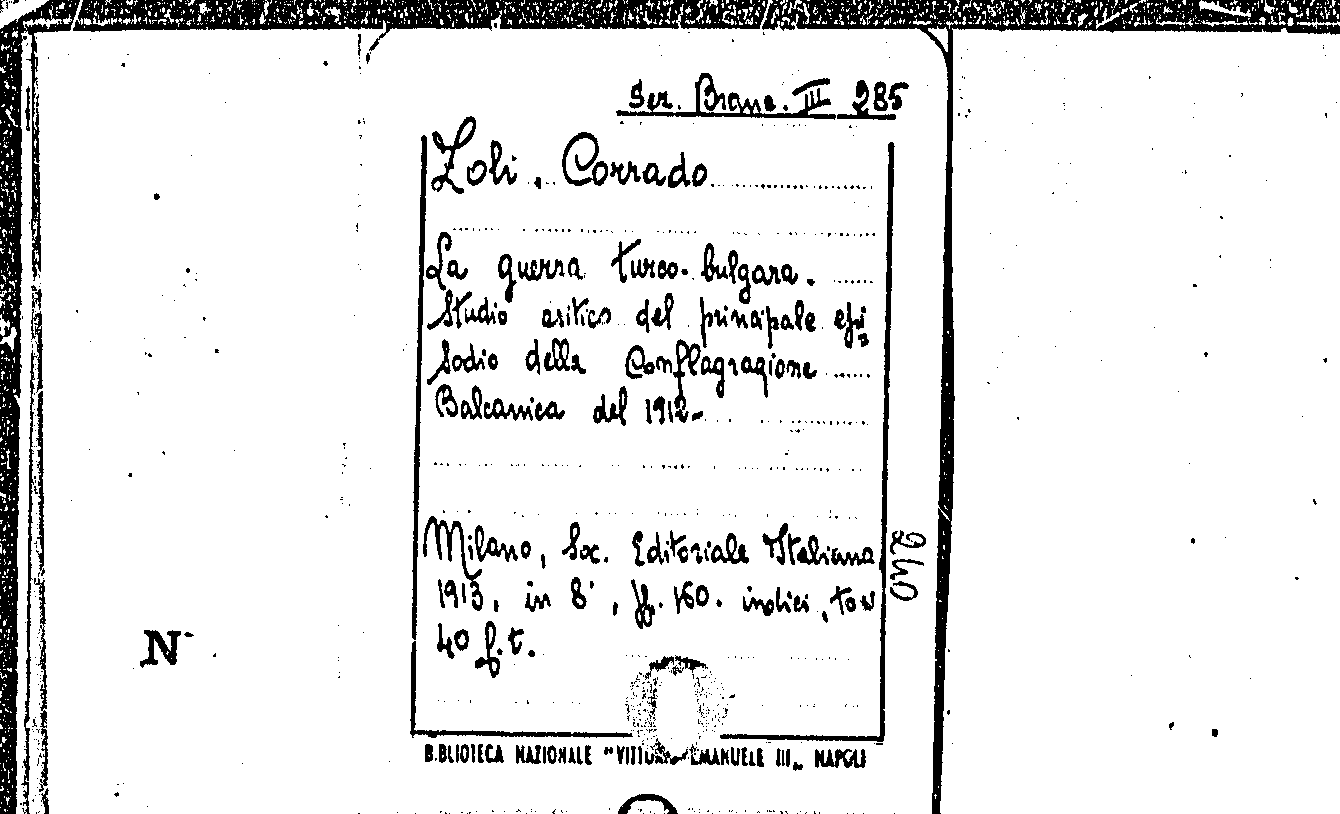 Ser. Branc. III 285
Zoli, Corrado
La guerra turco-bulgara.
Studio critico del principale epi
sodio della Conflagrazione
Balcanica del 1912-
Milano, Soc. Editoriale Italiana,
1913, in 8°, 160. indici, tav
40 f.t.
240
N.
BIBLIOTECA NAZIONALE "VITTORIO EMANUELE III" NAPOLI